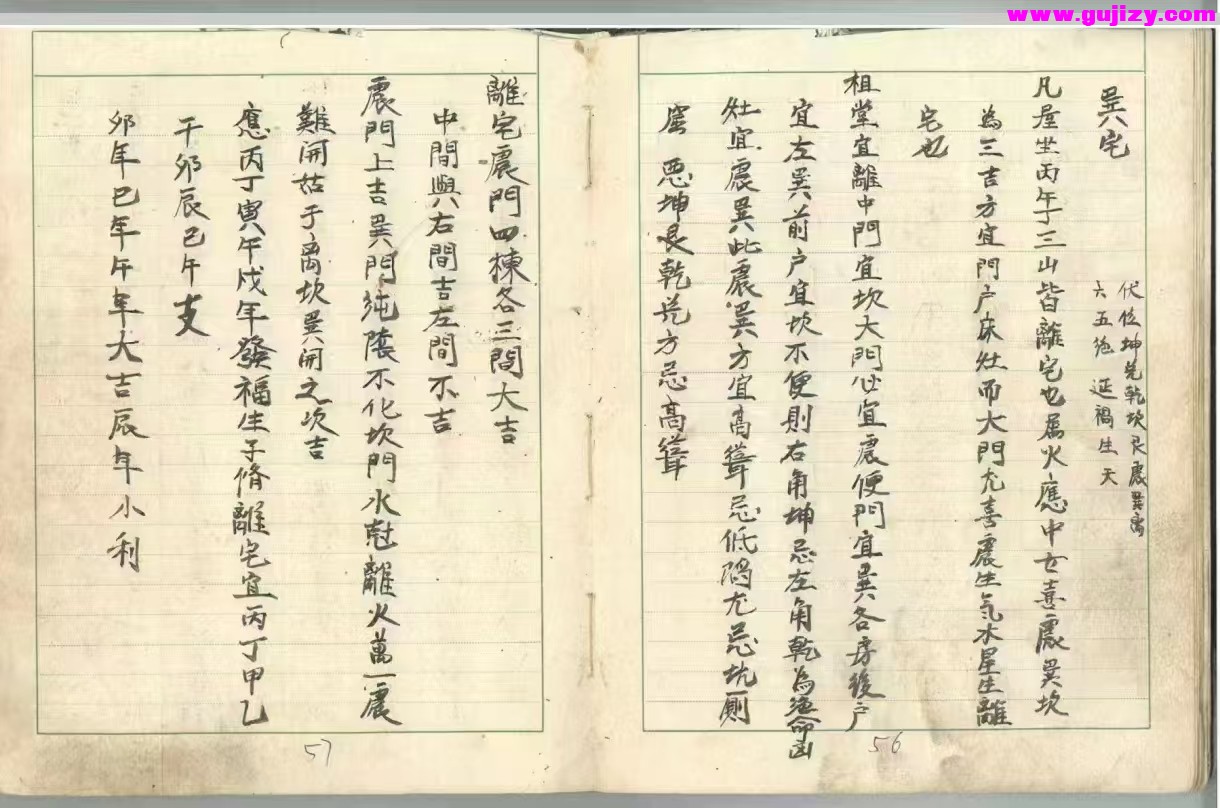 www.gujizy.com
巽宅
伏位坤兑乾坎艮震巽离
六五绝延祸生天
凡屋坐丙午丁三山皆離宅也属火應中女喜震巽坎
為三吉方宜門户床灶而大門尤喜震生氣木星生離
宅也
祖堂宜離中門宜坎大門必宜震便門宜巽各房後户
宜左巽前户宜坎不便則右角坤忌左角乾為绝命凶
灶宜震巽此震巽方宜高聳忌低陷尤忌坑厠
窑 恶坤艮乾兑方忌高聳
56
離宅震門四棟各三間大吉
中間與右間吉左間不吉
震門上吉巽門纯陰不化坎門水尅離火萬一震
難開姑于离坎巽開之坎吉
應丙丁寅午戌年發福生子脩離宅宜丙丁甲乙
干卯辰巳午支
卯年巳年午年大吉辰年小利
57